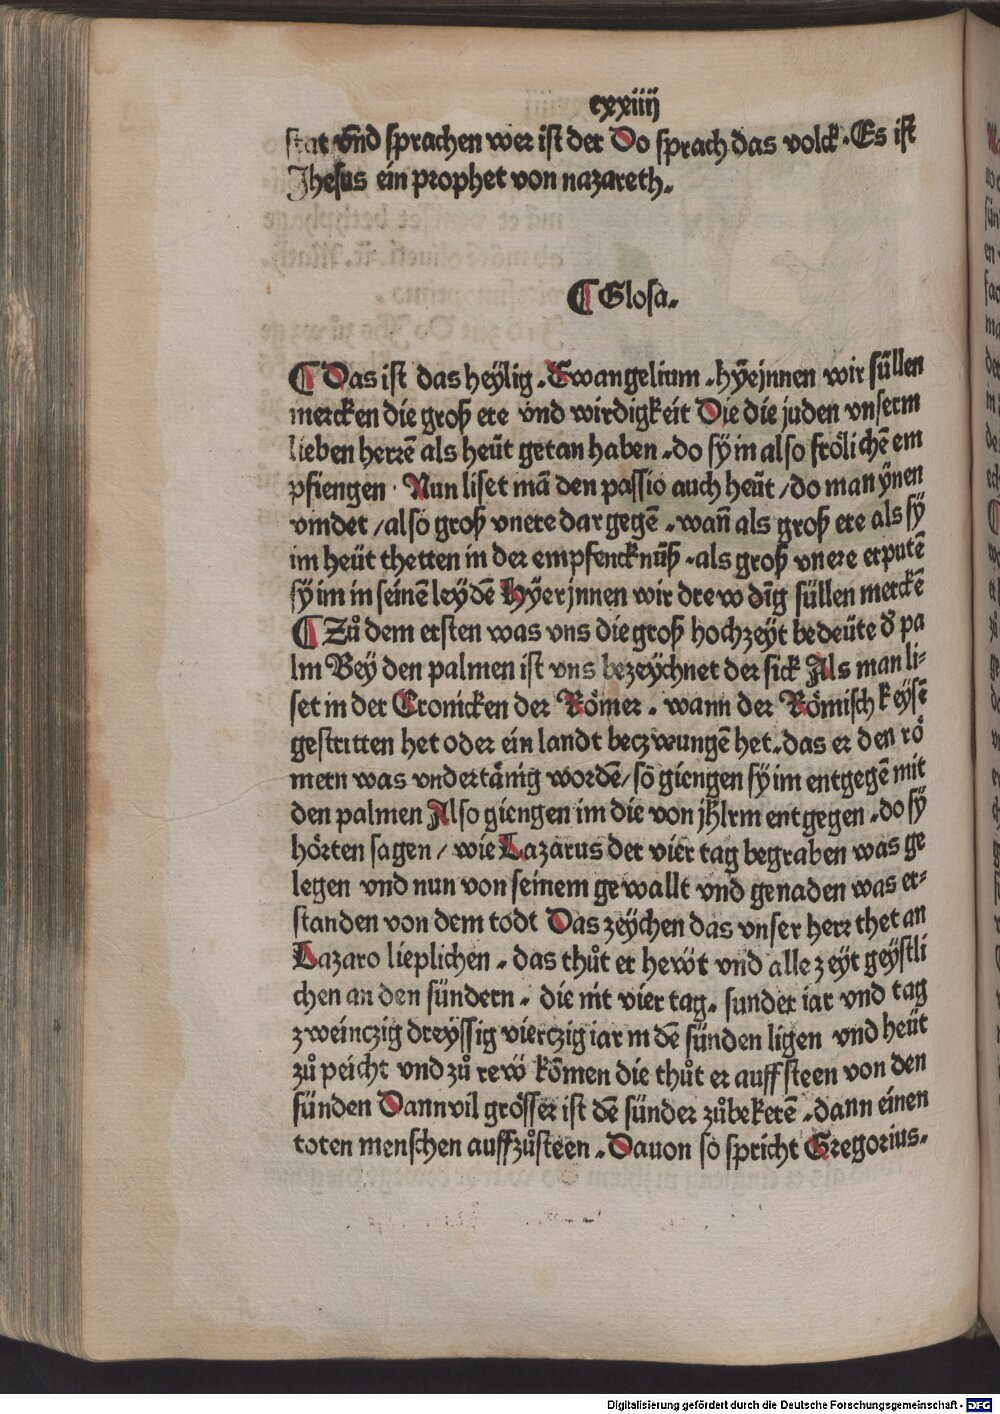 cxxiiij
stat vnd sprachen wer ist der Do sprach das volck. Es ist
Jhesus ein prophet von nazareth.
¶ Glosa.
¶ Das ist das heÿlig. Ewangelium. hÿejnnen wir süllen
mercken die groß ere vnd wirdigkeit Die die juden vnserm
lieben herrē als heüt getan haben. do sÿ in also frölichē em
pfiengen. Nun liset mā den passio auch heüt / do man ÿnen
vindet / also groß vnere dargegē. wañ als groß ere als sÿ
im heüt thetten in der empfencknūß. als groß vnere erputē
sÿ im in seinē leÿdē Hÿerjnnen wir drew dīg süllen merckē
¶ Zů dem ersten was vns die groß hochzeÿt bedeüte d̕ pa
lm Beÿ den palmen ist vns bezeÿchnet der sick Als man li⸗
set in der Cronicken der Römer. wann der Römisch keÿsē
gestritten het oder ein landt beczwungē het. das er den rö
mern was vndertänig wordē / so giengen sÿ im entgegē mit
den palmen Also giengen im die von jhrlm entgegen. do sÿ
hörten sagen / wie Lazarus der vier tag begraben was ge
legen vnd nun von seinem gewallt vnd genaden was er⸗
standen von dem todt Das zeÿchen das vnser herr thet an
Lazaro lieplichen. das thůt er hewt vnd alle zeÿt geÿstli
chen an den sündern. die nit vier tag. sunder iar vnd tag
zweinczig dreÿssig vierczig iar in dē sünden ligen vnd heüt
zů peicht vnd zů rew kōmen die thůt er auff steen von den
sünden Dann vil grösser ist dē sünder zůbekerē. dann einen
toten menschen auffzůsteen. Dauon so spricht Gregorius.
Digitalisierung gefördert durch die Deutsche Forschungsgemeinschaft - DFG